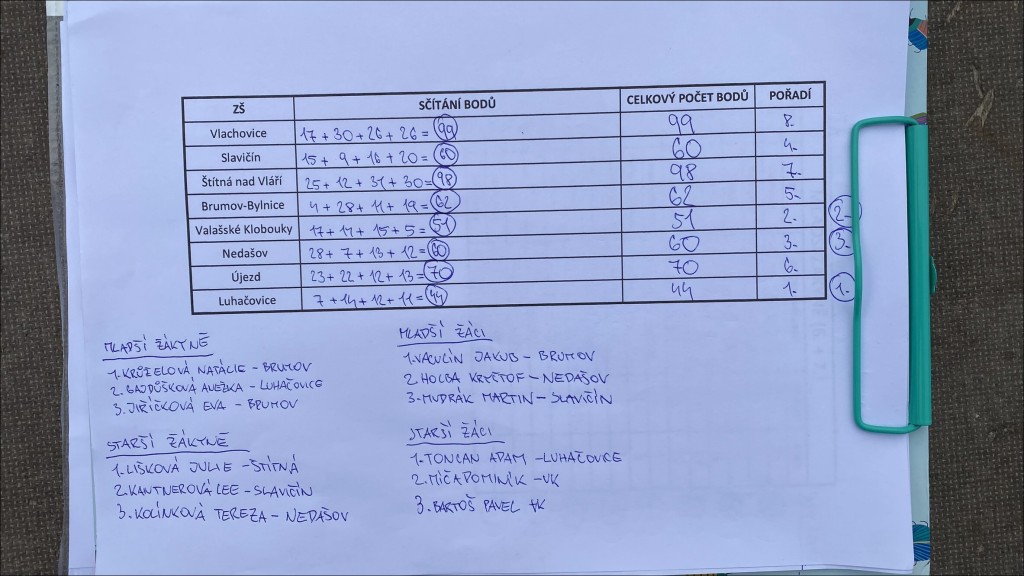 ZŠ SČÍTÁNÍ BODŮ CELKOVÝ POČET BODŮ POŘADÍ
Vlachovice 17 + 30 + 26 + 26 = 99 99 8.
Slavičín 15 + 9 + 16 + 20 = 60 60 4.
Štítná nad Vláří 25 + 12 + 31 + 30 = 98 98 7.
Brumov-Bylnice 4 + 28 + 11 + 19 = 62 62 5.
Valašské Klobouky 17 + 14 + 15 + 5 = 51 51 2. 2.
Nedašov 28 + 7 + 13 + 12 = 60 60 3. 3.
Újezd 23 + 22 + 12 + 13 = 70 70 6.
Luhačovice 7 + 14 + 12 + 11 = 44 44 1. 1.
MLADŠÍ ŽÁKYNĚ
1. KRŮŽELOVÁ NATÁLIE - BRUMOV
2. GAJDŮŠKOVÁ ANEŽKA - LUHAČOVICE
3. JIŘÍČKOVÁ EVA - BRUMOV
MLADŠÍ ŽÁCI
1. VACULÍN JAKUB - BRUMOV
2. HOLBA KRYŠTOF - NEDAŠOV
3. MUDRÁK MARTIN - SLAVIČÍN
STARŠÍ ŽÁKYNĚ
1. LIŠKOVÁ JULIE - ŠTÍTNÁ
2. KANTNEROVÁ LEE - SLAVIČÍN
3. KOLÍNKOVÁ TEREZA - NEDAŠOV
STARŠÍ ŽÁCI
1. TONCAN ADAM - LUHAČOVICE
2. MÍČA DOMINIK - VK
3. BARTOŠ PAVEL